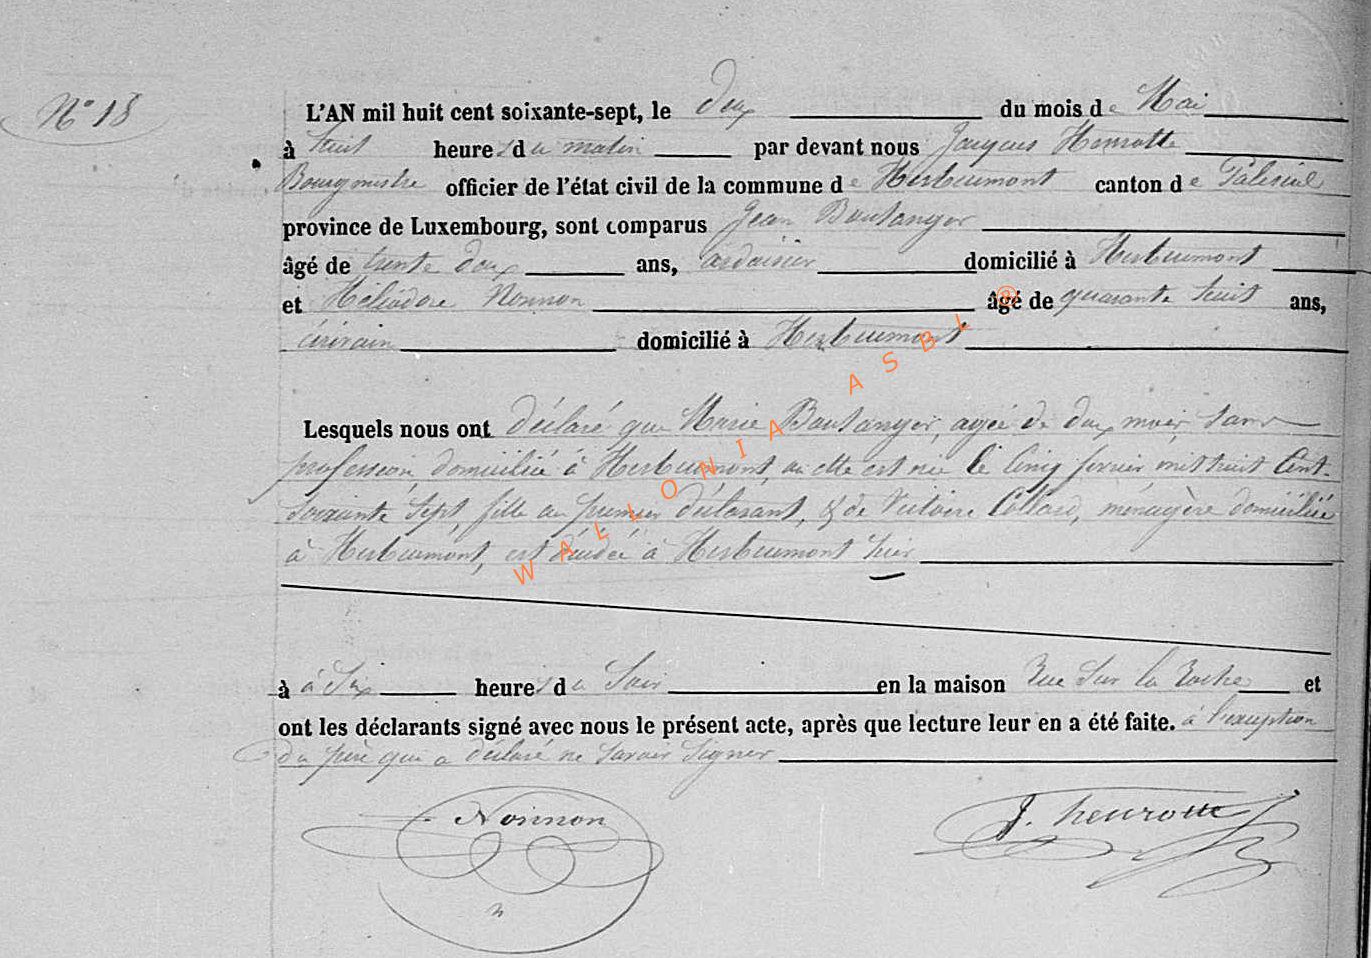 N° 18
L'AN mil huit cent soixante-sept, le deux du mois de Mai
à huit heures du matin par devant nous Jacques Henrotte
Bourgmestre officier de l'état civil de la commune de Herbeumont canton de Paliseul
province de Luxembourg, sont comparus Jean Boulanger
âgé de trente deux ans, ardoisier domicilié à Herbeumont
et Héliodore Nonnon âgé de quarante huit ans,
écrivain domicilié à Herbeumont
Lesquels nous ont déclaré que Marie Boulanger, agée de deux mois, sans
profession, domiciliée à Herbeumont, ou elle est née le cinq fevrier mil huit cent-
soixante sept, fille du premier déclarant, & de Victoire Collard, ménagère domiciliée
à Herbeumont, est décédée à Herbeumont hier
à à six heures du soir en la maison rue sur la Roche et
ont les déclarants signé avec nous le présent acte, après que lecture leur en a été faite. à l'exception
du père qui a declaré ne savoir signer
Nonnon
J. henrotte
WALLONIA ASBL ®